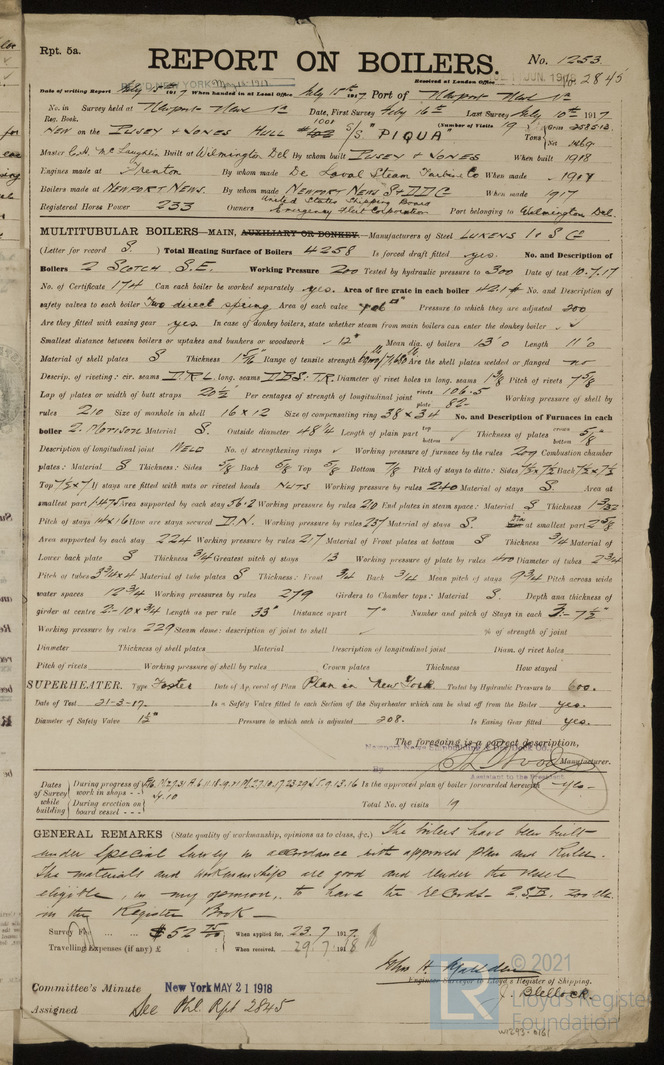 Rpt. 5a.
REPORT ON BOILERS.
No. 1253
Received at London Office
No. 2845
Date of writing Report 1917 When handed in at Local Office July 1917 Port of Newport News Va
No. in Reg. Book. Survey held at Newport News Va Date, First Survey Feby 16th Last Survey July 10th 1917
(Number of Visits 19)
New on the Pusey & Jones Hull S/S "PIQUA" Tons Gross Net
Master C.H. McLaughlin Built at Wilmington Del By whom built Pusey & Jones When built 1918
Engines made at Trenton By whom made De Laval Steam Turbine Co When made 1917
Boilers made at Newport News. By whom made Newport News S & D D Co When made 1917
Registered Horse Power 233 Owners United States Shipping Board Emergency Fleet Corporation Port belonging to Wilmington Del.
MULTITUBULAR BOILERS—MAIN, AUXILIARY OR DONKEY.—Manufacturers of Steel Lukens I & S Co
(Letter for record S.) Total Heating Surface of Boilers 4258 Is forced draft fitted yes. No. and Description of
Boilers 2 Scotch S.E. Working Pressure 200 Tested by hydraulic pressure to 300 Date of test 10.7.17
No. of Certificate 174 Can each boiler be worked separately yes. Area of fire grate in each boiler No. and Description of
safety valves to each boiler Two direct spring Area of each valve Pressure to which they are adjusted 200
Are they fitted with easing gear yes In case of donkey boilers, state whether steam from main boilers can enter the donkey boiler ✓
Smallest distance between boilers or uptakes and bunkers or woodwork ✓ 12" Mean dia. of boilers 13' 0 Length 11' 0
Material of shell plates S Thickness Range of tensile strength Are the shell plates welded or flanged no
Descrip. of riveting: cir. seams D.R.L. long. seams D.B.S. T.R. Diameter of rivet holes in long. seams 1 3/8 Pitch of rivets 7 5/8
Lap of plates or width of butt straps 20 1/2 Per centages of strength of longitudinal joint rivets 106.5 plate 82 Working pressure of shell by
rules 210 Size of manhole in shell 16 x 12 Size of compensating ring 38 x 34 No. and Description of Furnaces in each
boiler 2. Morison Material S. Outside diameter 48 1/4 Length of plain part top bottom ✓ Thickness of plates crown bottom 5/8
Description of longitudinal joint Weld No. of strengthening rings ✓ Working pressure of furnace by the rules Combustion chamber
plates: Material S Thickness: Sides 5/8 Back 5/8 Top 5/8 Bottom 7/8 Pitch of stays to ditto: Sides 7 1/2 x 7 1/2 Back 7 1/2 x 7 1/2
Top 7 1/2 x 7 If stays are fitted with nuts or riveted heads Nuts Working pressure by rules 240 Material of stays S. Area at
smallest part 1.475 Area supported by each stay 56.2 Working pressure by rules 210 End plates in steam space: Material S Thickness 1 3/32
Pitch of stays 14 x 16 How are stays secured D.N. Working pressure by rules 237 Material of stays S. at smallest part 2 5/8
Area supported by each stay 224 Working pressure by rules 217 Material of Front plates at bottom S Thickness 3/4 Material of
Lower back plate S Thickness 3/4 Greatest pitch of stays 13 Working pressure of plate by rules 400 Diameter of tubes 2 3/4
Pitch of tubes 3 3/4 x 4 Material of tube plates S Thickness: Front 3/4 Back 3/4 Mean pitch of stays 9 3/4 Pitch across wide
water spaces 12 3/4 Working pressures by rules 279 Girders to Chamber tops: Material S. Depth and thickness of
girder at centre 2 - 10 x 3/4 Length as per rule 33" Distance apart 7" Number and pitch of Stays in each 3 - 7 1/2"
Working pressure by rules 229 Steam dome: description of joint to shell ✓ % of strength of joint
Diameter Thickness of shell plates Material Description of longitudinal joint Diam. of rivet holes
Pitch of rivets Working pressure of shell by rules Crown plates Thickness How stayed
SUPERHEATER. Type Foster Date of Approval of Plan Plan in New York. Tested by Hydraulic Pressure to 600.
Date of Test 21-3-17. Is a Safety Valve fitted to each Section of the Superheater which can be shut off from the Boiler yes.
Diameter of Safety Valve 1 1/2" Pressure to which each is adjusted 208. Is Easing Gear fitted yes.
The foregoing is a correct description,
Manufacturer.
By
Assistant to the President
Dates of Survey while building
During progress of work in shops - -
During erection on board vessel - - -
Is the approved plan of boiler forwarded herewith yes
Total No. of visits 19
GENERAL REMARKS (State quality of workmanship, opinions as to class, &c.) The boilers have been built
under Special Survey in accordance with approved plan and Rules.
The materials and workmanship are good and render the vessel
eligible, in my opinion, to have the records - 2 S.B. 200 lbs.
in the Register Book -
Survey Fee ... $52 When applied for, 23.7 1917.
Travelling Expenses (if any) £ When received, 29.7.1918
Engineer Surveyor to Lloyd's Register of Shipping.
Committee's Minute New York MAY 21 1918
Assigned See Phl Rpt 2845
© 2021
Lloyd's Register
Foundation
W1293-0161